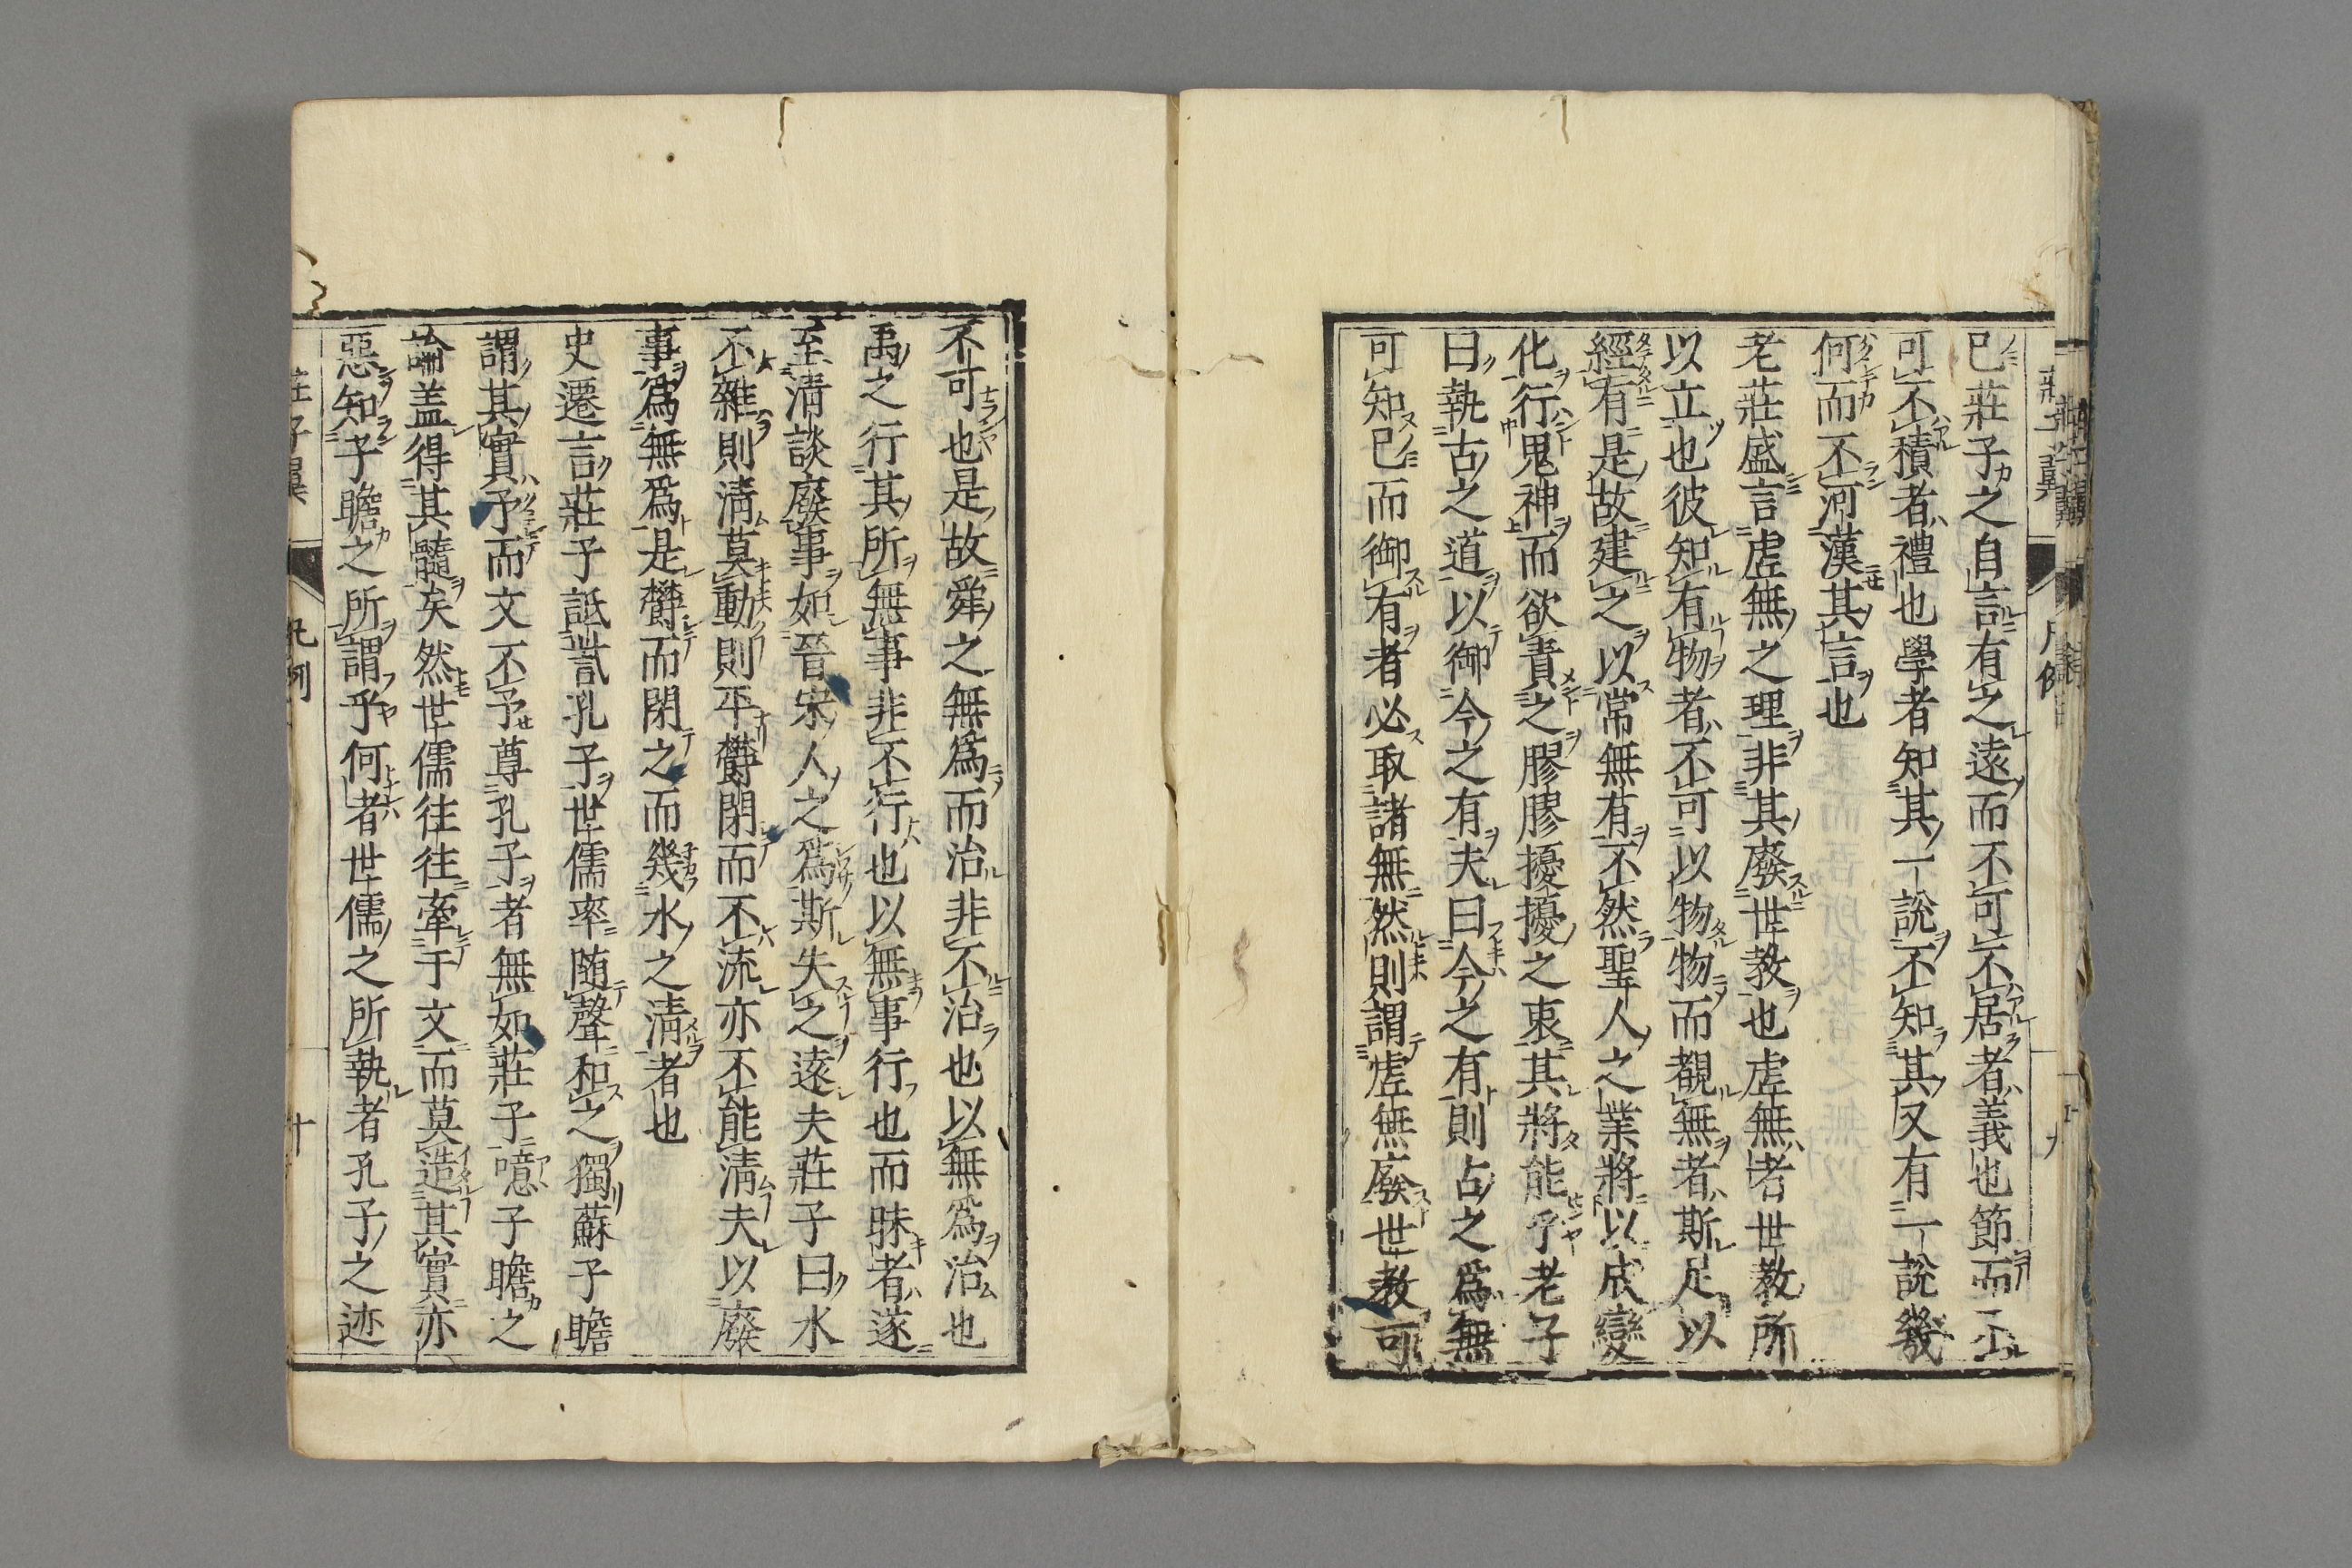 已莊子之自言有之遠而不可不居者義也節而不
可不積者禮也學者知其一說不知其又有一說幾
何而不河漢其言也
老莊盛言虛無之理非其廢世教也虛無者世教所
以立也彼知有物者不可以物物而覩無者斯足以
經有是故建之以常無有不然聖人之業將以成變
化行鬼神而欲責之膠膠擾擾之衷其將能乎老子
曰執古之道以御今之有夫曰今之有則古之爲無
可知已而御有者必取諸無然則謂虛無廢世教可
不可也是故舜之無爲而治非不治也以無爲治也
禹之行其所無事非不行也以無事行也而昧者遂
至清談廢事如晉宋人之爲斯失之遠夫莊子曰水
不雜則清莫動則平欝閉而不流亦不能清夫以廢
事爲無爲是欝而閉之而幾水之清者也
史遷言莊子詆訾孔子世儒率隨聲和之獨蘇子瞻
謂其實予而文不予尊孔子者無如莊子噫子瞻之
論盖得其髓矣然世儒往往牽于文而莫造其實亦
惡知子瞻之所謂乎何者世儒之所執者孔子之迹
莊子翼
凡例
十